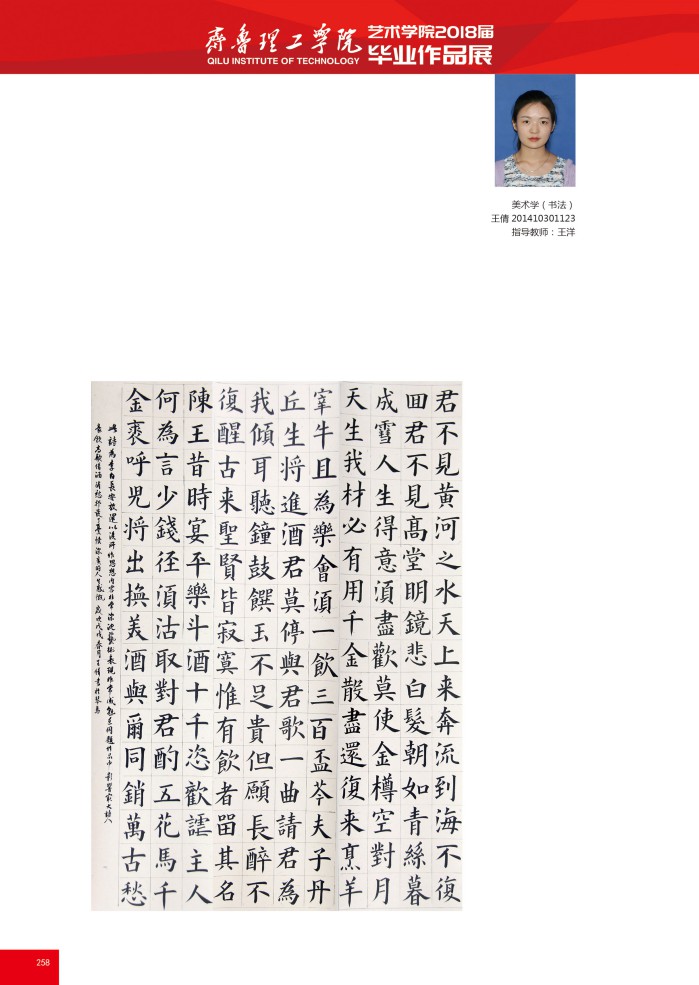 齊魯理工學院
QILU INSTITUTE OF TECHNOLOGY
艺术学院2018届
毕业作品展
美术学（书法）
王倩 201410301123
指导教师：王洋
君不見黃河之水天上来奔流到海不復
回君不見髙堂明鏡悲白髮朝如青絲暮
成雪人生得意湏盡歡莫使金樽空對月
天生我材必有用千金散盡還復来烹羊
宰牛且為樂會湏一飲三百盃岑夫子丹
丘生将進酒君莫停與君歌一曲請君為
我傾耳聽鐘鼓饌玉不足貴但願長醉不
復醒古来聖賢皆寂寞惟有飲者留其名
陳王昔時宴平樂斗酒十千恣歡謔主人
何為言少錢径湏沽取對君酌五花馬千
金裘呼兒将出換美酒與爾同銷萬古愁
此詩為李白長安放還以後所作思想内容非常深沈藝術表現非常成熟在同題作品中影響最大詩人
歲次戊戌春月王倩書於
258